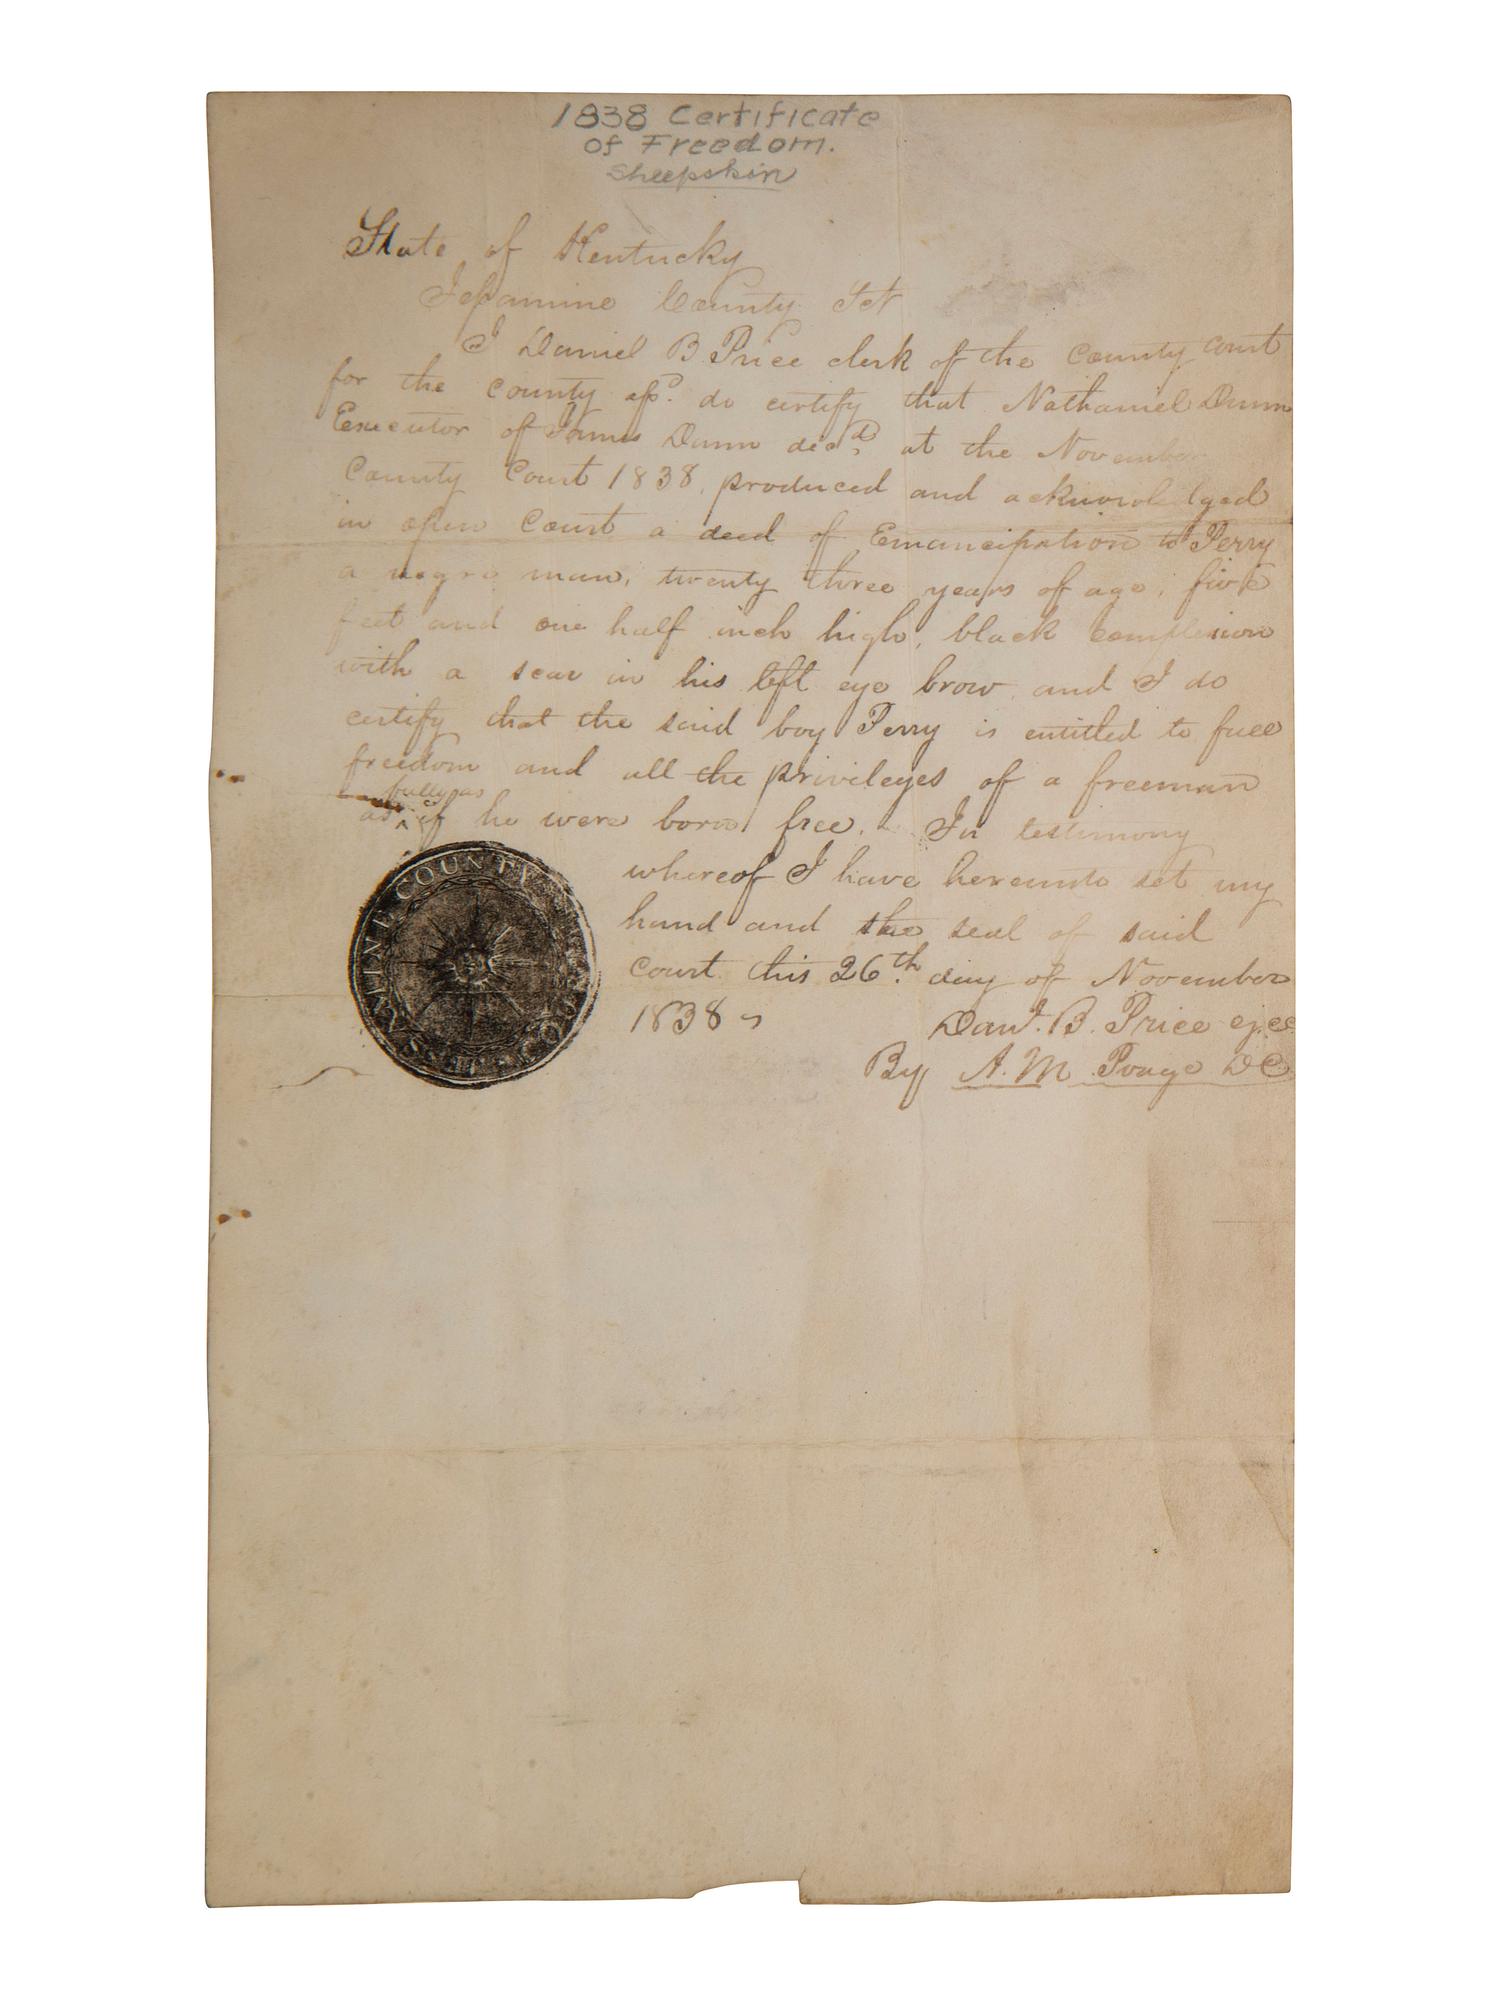 1838 Certificate
of Freedom.
Sheepskin
State of Kentucky
Jessamine County Sct
I Daniel B Price clerk of the County court
for the county afsd. do certify that Nathaniel Dunn
Executor of James Dunn decd, at the November
County Court 1838, produced and acknowledged
in open Court a deed of Emancipation to Perry
a negro man, twenty three years of age, five
feet and one half inch high, black complexion
with a scar in his left eye brow and I do
certify that the said boy Perry is entitled to full
freedom and all the privileges of a freeman
fully as
as ^ if he were born free. In testimony
whereof I have hereunto set my
hand and the seal of said
court this 26th. day of November
1838
Danl. B. Price
By A. M. Poage DC
JESSAMINE COUNTY